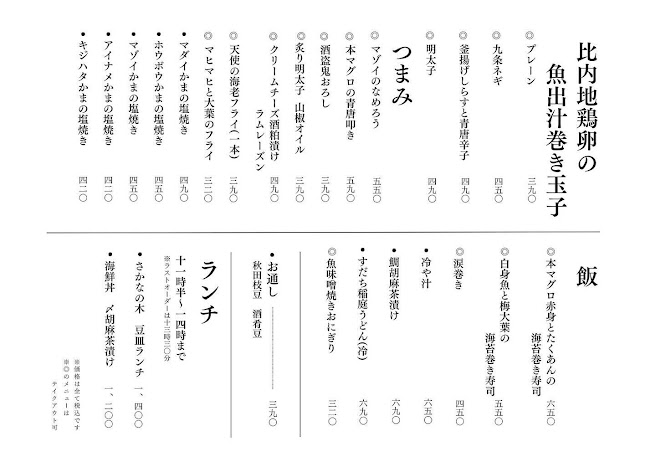 比内地鶏卵の
魚出汁巻き玉子
◎プレーン 三九〇
◎九条ネギ 四五〇
◎釜揚げしらすと青唐辛子 四九〇
◎明太子 四九〇
つまみ
◎マゾイのなめろう 五五〇
◎本マグロの青唐叩き 五九〇
◎酒盗鬼おろし 三九〇
◎炙り明太子 山椒オイル 三九〇
◎クリームチーズ酒粕漬け
ラムレーズン 四九〇
◎天使の海老フライ(一本) 三九〇
◎マヒマヒと大葉のフライ 三二〇
•マダイかまの塩焼き 四九〇
•ホウボウかまの塩焼き 四五〇
•マゾイかまの塩焼き 四五〇
•アイナメかまの塩焼き 四二〇
•キジハタかまの塩焼き 四二〇
飯
◎本マグロ赤身とたくあんの
海苔巻き寿司 六五〇
◎白身魚と梅大葉の
海苔巻き寿司 五五〇
◎涙巻き 四五〇
•冷や汁 六五〇
•鯛胡麻茶漬け 六九〇
•すだち稲庭うどん(冷) 六九〇
◎魚味噌焼きおにぎり 三二〇
•お通し 三九〇
秋田枝豆 酒肴豆
ランチ
十一時半〜一四時まで
※ラストオーダーは十三時三〇分
•さかなの木 豆皿ランチ 一、四〇〇
•海鮮丼 〆胡麻茶漬け 一、二〇〇
※価格は全て税込です
※◎のメニューは
テイクアウト可